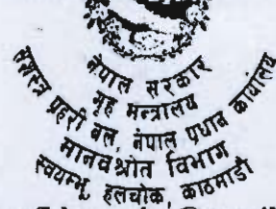 नेपाल सरकार
गृह मन्त्रालय
सशस्त्र प्रहरी बल, नेपाल प्रधान कार्यालय
मानवश्रोत विभाग
स्वयम्भू, हलचोक काठमाडौं